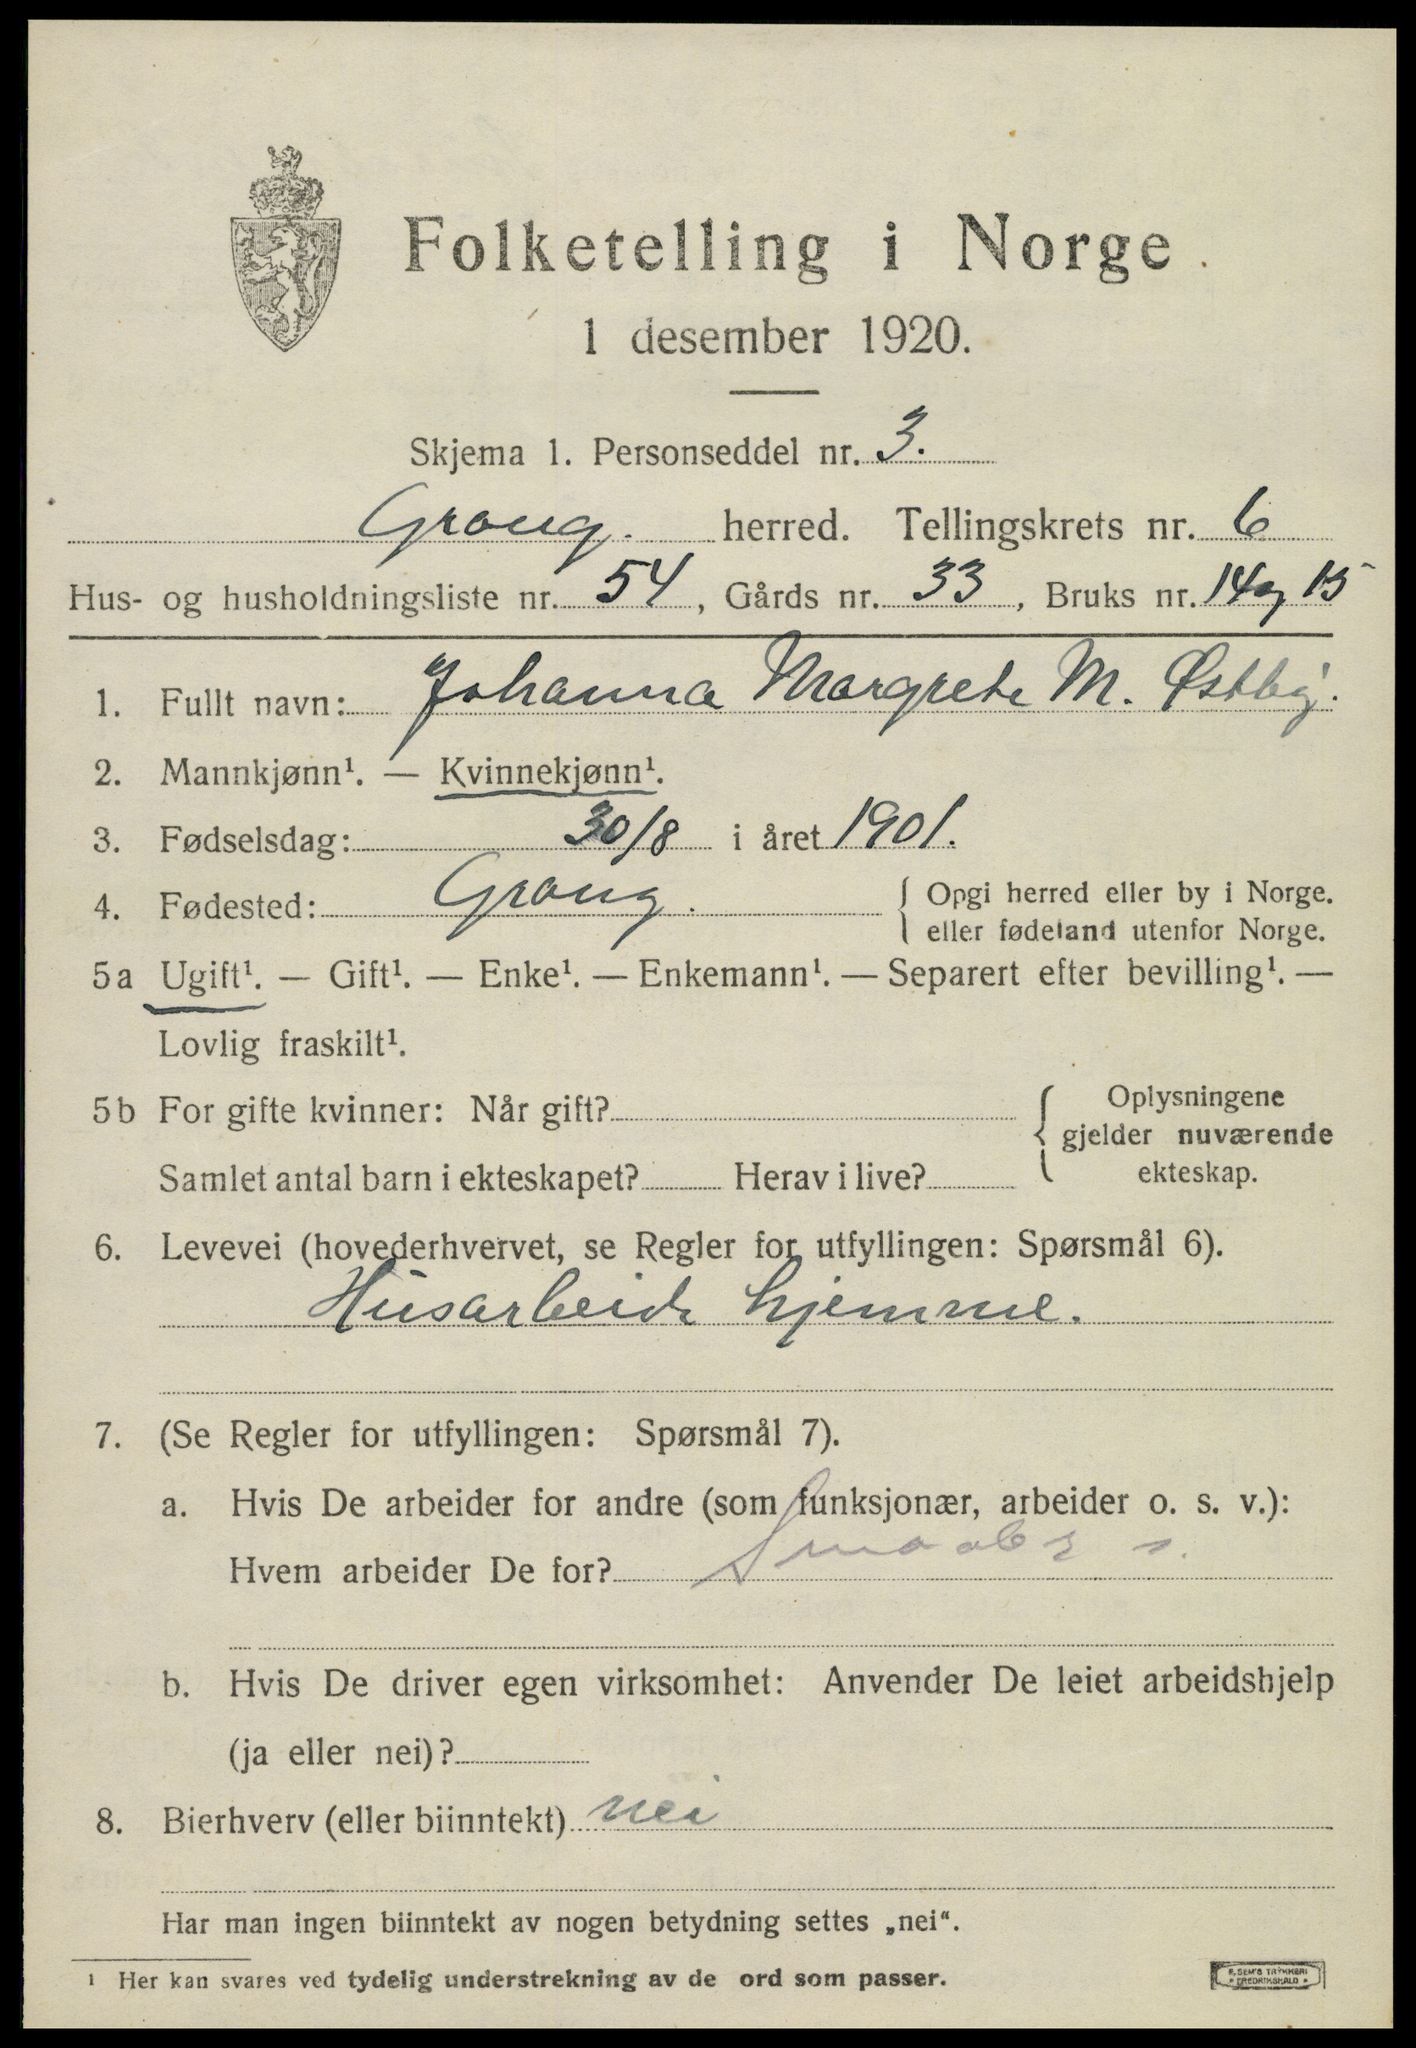 Folketelling i Norge
1 desember 1920.
Skjema 1. Personseddel nr. 3.
Grong. herred. Tellingskrets nr. 6
Hus- og husholdningsliste nr. 54, Gårds nr. 33, Bruks nr. 14 og 15
1. Fullt navn: Johanna Margrete M. Østby.
2. Mannkjønn¹. — Kvinnekjønn¹.
3. Fødselsdag: 30/8 i året 1901.
4. Fødested: Grong. { Opgi herred eller by i Norge.
eller fødeland utenfor Norge.
5a Ugift¹. — Gift¹. — Enke¹. — Enkemann¹. — Separert efter bevilling¹. —
Lovlig fraskilt¹.
5b For gifte kvinner: Når gift?
Samlet antal barn i ekteskapet? Herav i live?
Oplysningene
gjelder nuværende
ekteskap.
6. Levevei (hovederhvervet, se Regler for utfyllingen: Spørsmål 6).
Husarbeide hjemme.
7. (Se Regler for utfyllingen: Spørsmål 7).
a. Hvis De arbeider for andre (som funksjonær, arbeider o. s. v.):
Hvem arbeider De for?
b. Hvis De driver egen virksomhet: Anvender De leiet arbeidshjelp
(ja eller nei)?
8. Bierhverv (eller biinntekt) nei
Har man ingen biinntekt av nogen betydning settes „nei“.
¹ Her kan svares ved tydelig understrekning av de ord som passer.
E. SEM'S TRYKKERI
• FREDRIKSHALD •